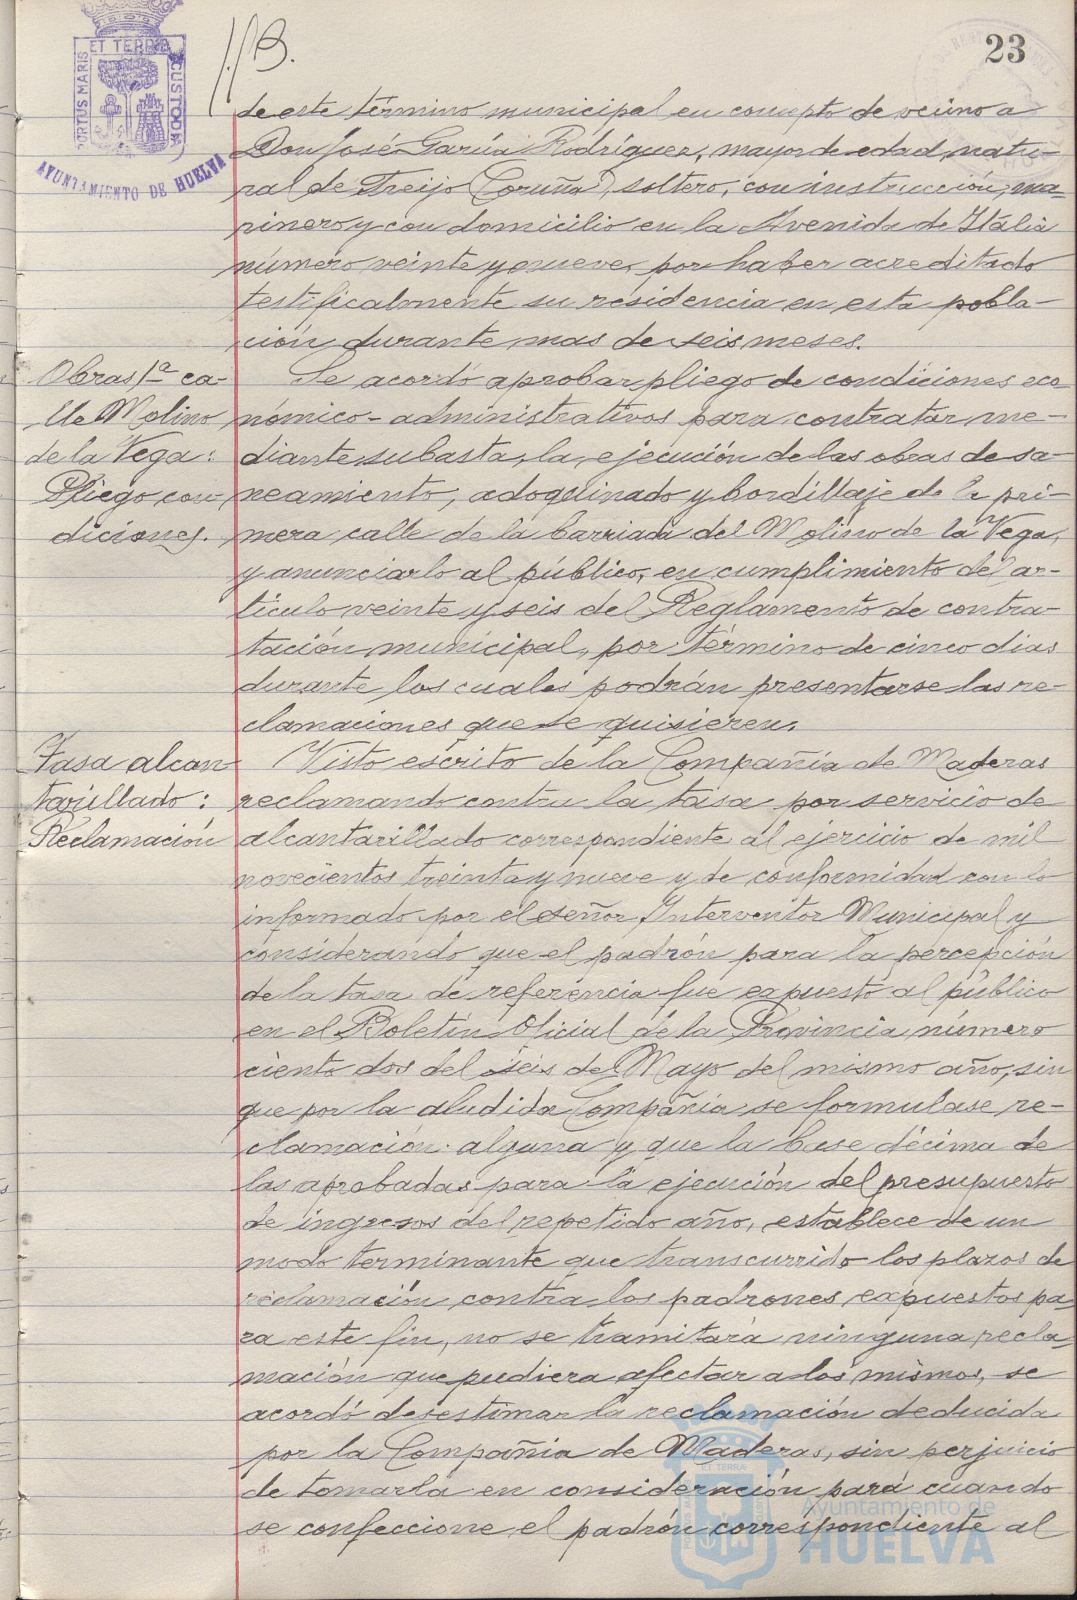 23
PORTUS MARIS ET TERRÆ CUSTODIA
AYUNTAMIENTO DE HUELVA
de este término municipal en concepto de vecino a
Don José García Rodríguez, mayor de edad, natu-
ral de Treijo (Coruña), soltero, con instrucción, ma-
rinero y con domicilio en la Avenida de Italia
número veinte y nueve, por haber acreditado
testificalmente su residencia en esta pobla-
ción durante mas de seis meses.
Obras 1ª ca-
lle Molino
de la Vega:
Pliego con-
diciones.
Se acordó aprobar pliego de condiciones eco
nómico-administrativas para contratar, me-
diante subasta, la ejecución de las obras de sa-
neamiento, adoquinado y bordillaje de la pri-
mera calle de la barriada del Molino de la Vega,
y anunciarlo al público, en cumplimiento del ar-
tículo veinte y seis del Reglamento de contra-
tación municipal, por término de cinco dias
durante los cuales podrán presentarse las re-
clamaciones que se quisieren.
Tasa alcan
tarillado:
Reclamación
Visto escrito de la Compañía de Maderas
reclamando contra la tasa por servicio de
alcantarillado correspondiente al ejercicio de mil
novecientos treinta y nueve y de conformidad con lo
informado por el señor Interventor Municipal y
considerando que el padrón para la percepción
de la tasa de referencia fue expuesto al público
en el Boletín Oficial de la Provincia número
ciento dos del seis de Mayo del mismo año, sin
que por la aludida Compañía se formulase re-
clamación alguna y que la base décima de
las aprobadas para la ejecución del presupuesto
de ingresos del repetido año, establece de un
modo terminante que transcurrido los plazos de
reclamación contra los padrones expuestos pa-
ra este fin, no se tramitará ninguna recla-
mación que pudiera afectar a los mismos, se
acordó desestimar la reclamación deducida
por la Compañía de Maderas, sin perjuicio
de tomarla en consideración para cuando
se confeccione el padrón correspondiente al
Ayuntamiento de
HUELVA